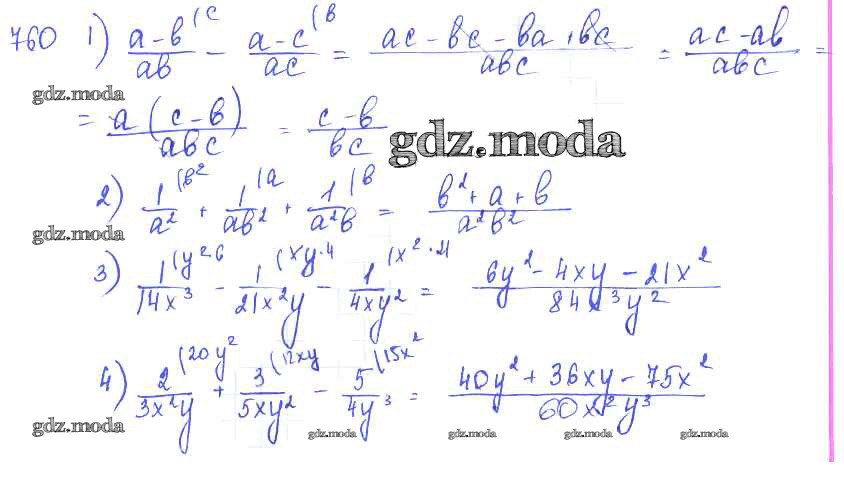 760 1) (a-в)/(aв) (c - (a-c)/(ac) (в = (ac - вc - вa + вc)/(aвc) = (ac - aв)/(aвc) =
gdz.moda
= a(c-в)/(aвc) = (c-в)/(вc)
gdz.moda
2) 1/a² (в² + 1/(aв²) (a + 1/(a²в) (в = (в² + a + в)/(a²в²)
gdz.moda
3) 1/(14x³) (y²·6 - 1/(21x²y) (xy·4 - 1/(4xy²) (x²·21 = (6y² - 4xy - 21x²)/(84x³y²)
4) 2/(3x²y) (20y² + 3/(5xy²) (12xy - 5/(4y³) (15x² = (40y² + 36xy - 75x²)/(60x²y³)
gdz.moda gdz.moda gdz.moda gdz.moda gdz.moda